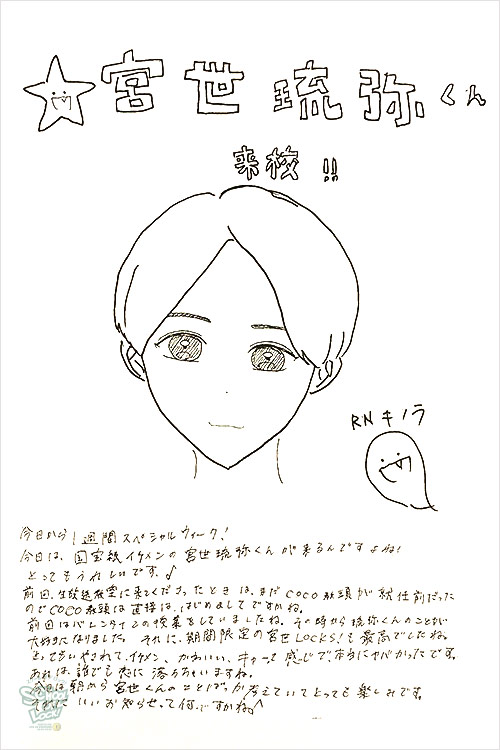 宮世琉弥くん
来校!!
RN キノラ
今日から1週間スペシャルウィーク!
今日は、国宝級イケメンの宮世琉弥くんが来るんですよね!
とってもうれしいです♪
前回、生放送教室に来てくださったときは、まだCOCO教頭が就任前だった
のでCOCO教頭は直接は、はじめましてですかね。
前回はバレンタインの授業をしていましたね。その時から琉弥くんのことが
大好きになりました。それに、期間限定の宮世LOCKS!も最高でしたね。
イケメン、かわいい、キャーって感じで、本当にヤバかったです。
あれは、誰でも恋に落ちちゃいますね。
今日は朝から宮世くんのことばっか考えていてとっても楽しみです。
いいお知らせって何ですかね
SCHOOL OF LOCK!